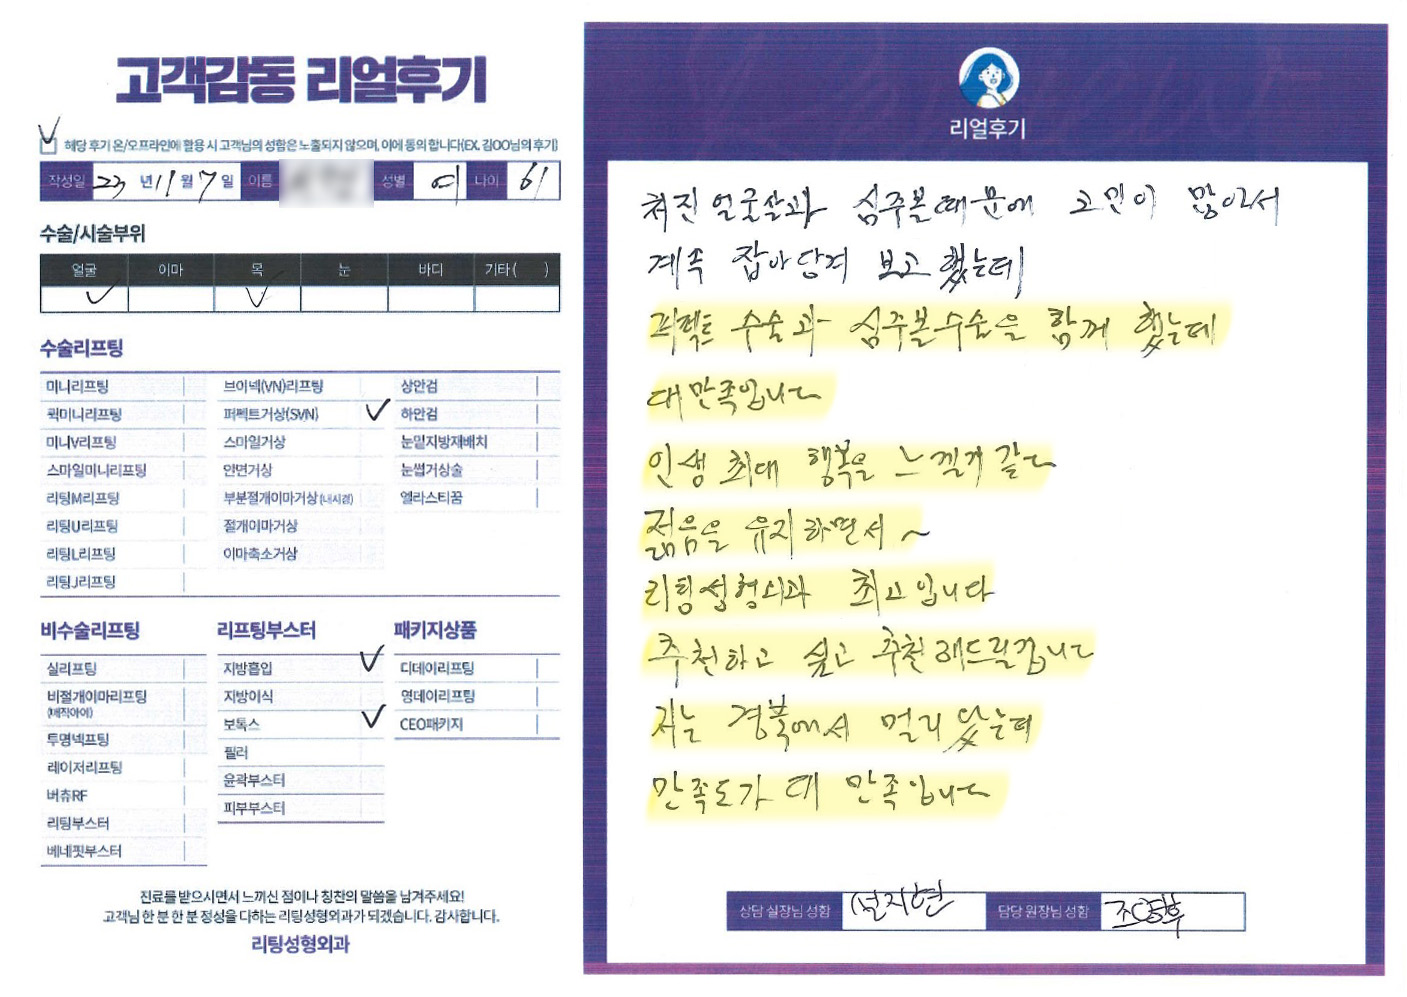 고객감동 리얼후기
해당 후기 온/오프라인에 활용 시 고객님의 성함은 노출되지 않으며, 이에 동의 합니다(EX. 김OO님의 후기)
작성일 23 년 11 월 7 일 이름 성별 여 나이 61
수술/시술부위
얼굴 이마 목 눈 바디 기타( )
수술리프팅
미니리프팅
퀵미니리프팅
미니V리프팅
스마일미니리프팅
리팅M리프팅
리팅U리프팅
리팅L리프팅
리팅J리프팅
브이넥(VN)리프팅
퍼펙트거상(SVN)
스마일거상
안면거상
부분절개이마거상(내시경)
절개이마거상
이마축소거상
상안검
하안검
눈밑지방재배치
눈썹거상술
엘라스티꿈
비수술리프팅
실리프팅
비절개이마리프팅
(매직아이)
투명넥프팅
레이저리프팅
버츄RF
리팅부스터
베네핏부스터
리프팅부스터
지방흡입
지방이식
보톡스
필러
윤곽부스터
피부부스터
패키지상품
디데이리프팅
영데이리프팅
CEO패키지
진료를 받으시면서 느끼신 점이나 칭찬의 말씀을 남겨주세요!
고객님 한 분 한 분 정성을 다하는 리팅성형외과가 되겠습니다. 감사합니다.
리팅성형외과
리얼후기
처진 얼굴살과 심주본때문에 고민이 많아서
계속 잡아당겨 보고 했는데
퍼펙트 수술과 심주본수술을 함께 했는데
대만족입니다
인생 최대 행복을 느낄거 같다
젊음을 유지하면서 ~
리팅성형외과 최고입니다
추천하고 싶고 추천해드릴겁니다
저는 경북에서 멀리 왔는데
만족도가 대 만족입니다
상담 실장님 성함 선지현 담당 원장님 성함